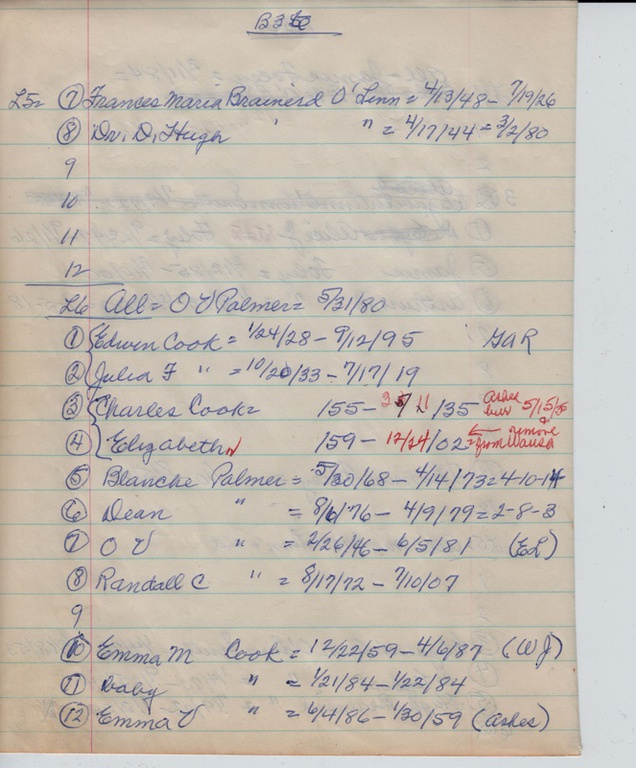 B36
L5= 7 Frances Maria Brainerd O'Linn = 4/13/48 - 7/19/26
8 Dr. D. Hugh " " = 4/17/44 = 3/2/80
9
10
11
12
L6 All = O V Palmer = 5/31/80
1 Edwin Cook = 1/24/28 - 9/12/95 GAR
2 Julia F " = 10/20/33 - 7/17/19
3 Charles Cook = /55 - /35 Ashes bur 5/15/35
4 Elizabeth " /59 - 12/24/02 = ← remove from Wausa
5 Blanche Palmer = 5/30/68 - 4/14/73 = 4-10-14
6 Dean " = 8/6/76 - 4/9/79 = 2-8-3
7 O V " = 2/26/46 - 6/5/81 (EL)
8 Randall C " = 8/17/72 - 7/10/07
9
10 Emma M Cook = 12/22/59 - 4/6/87 (WJ)
11 baby " = 1/21/84 - 1/22/84
12 Emma V " = 6/4/86 - 1/30/59 (Ashes)